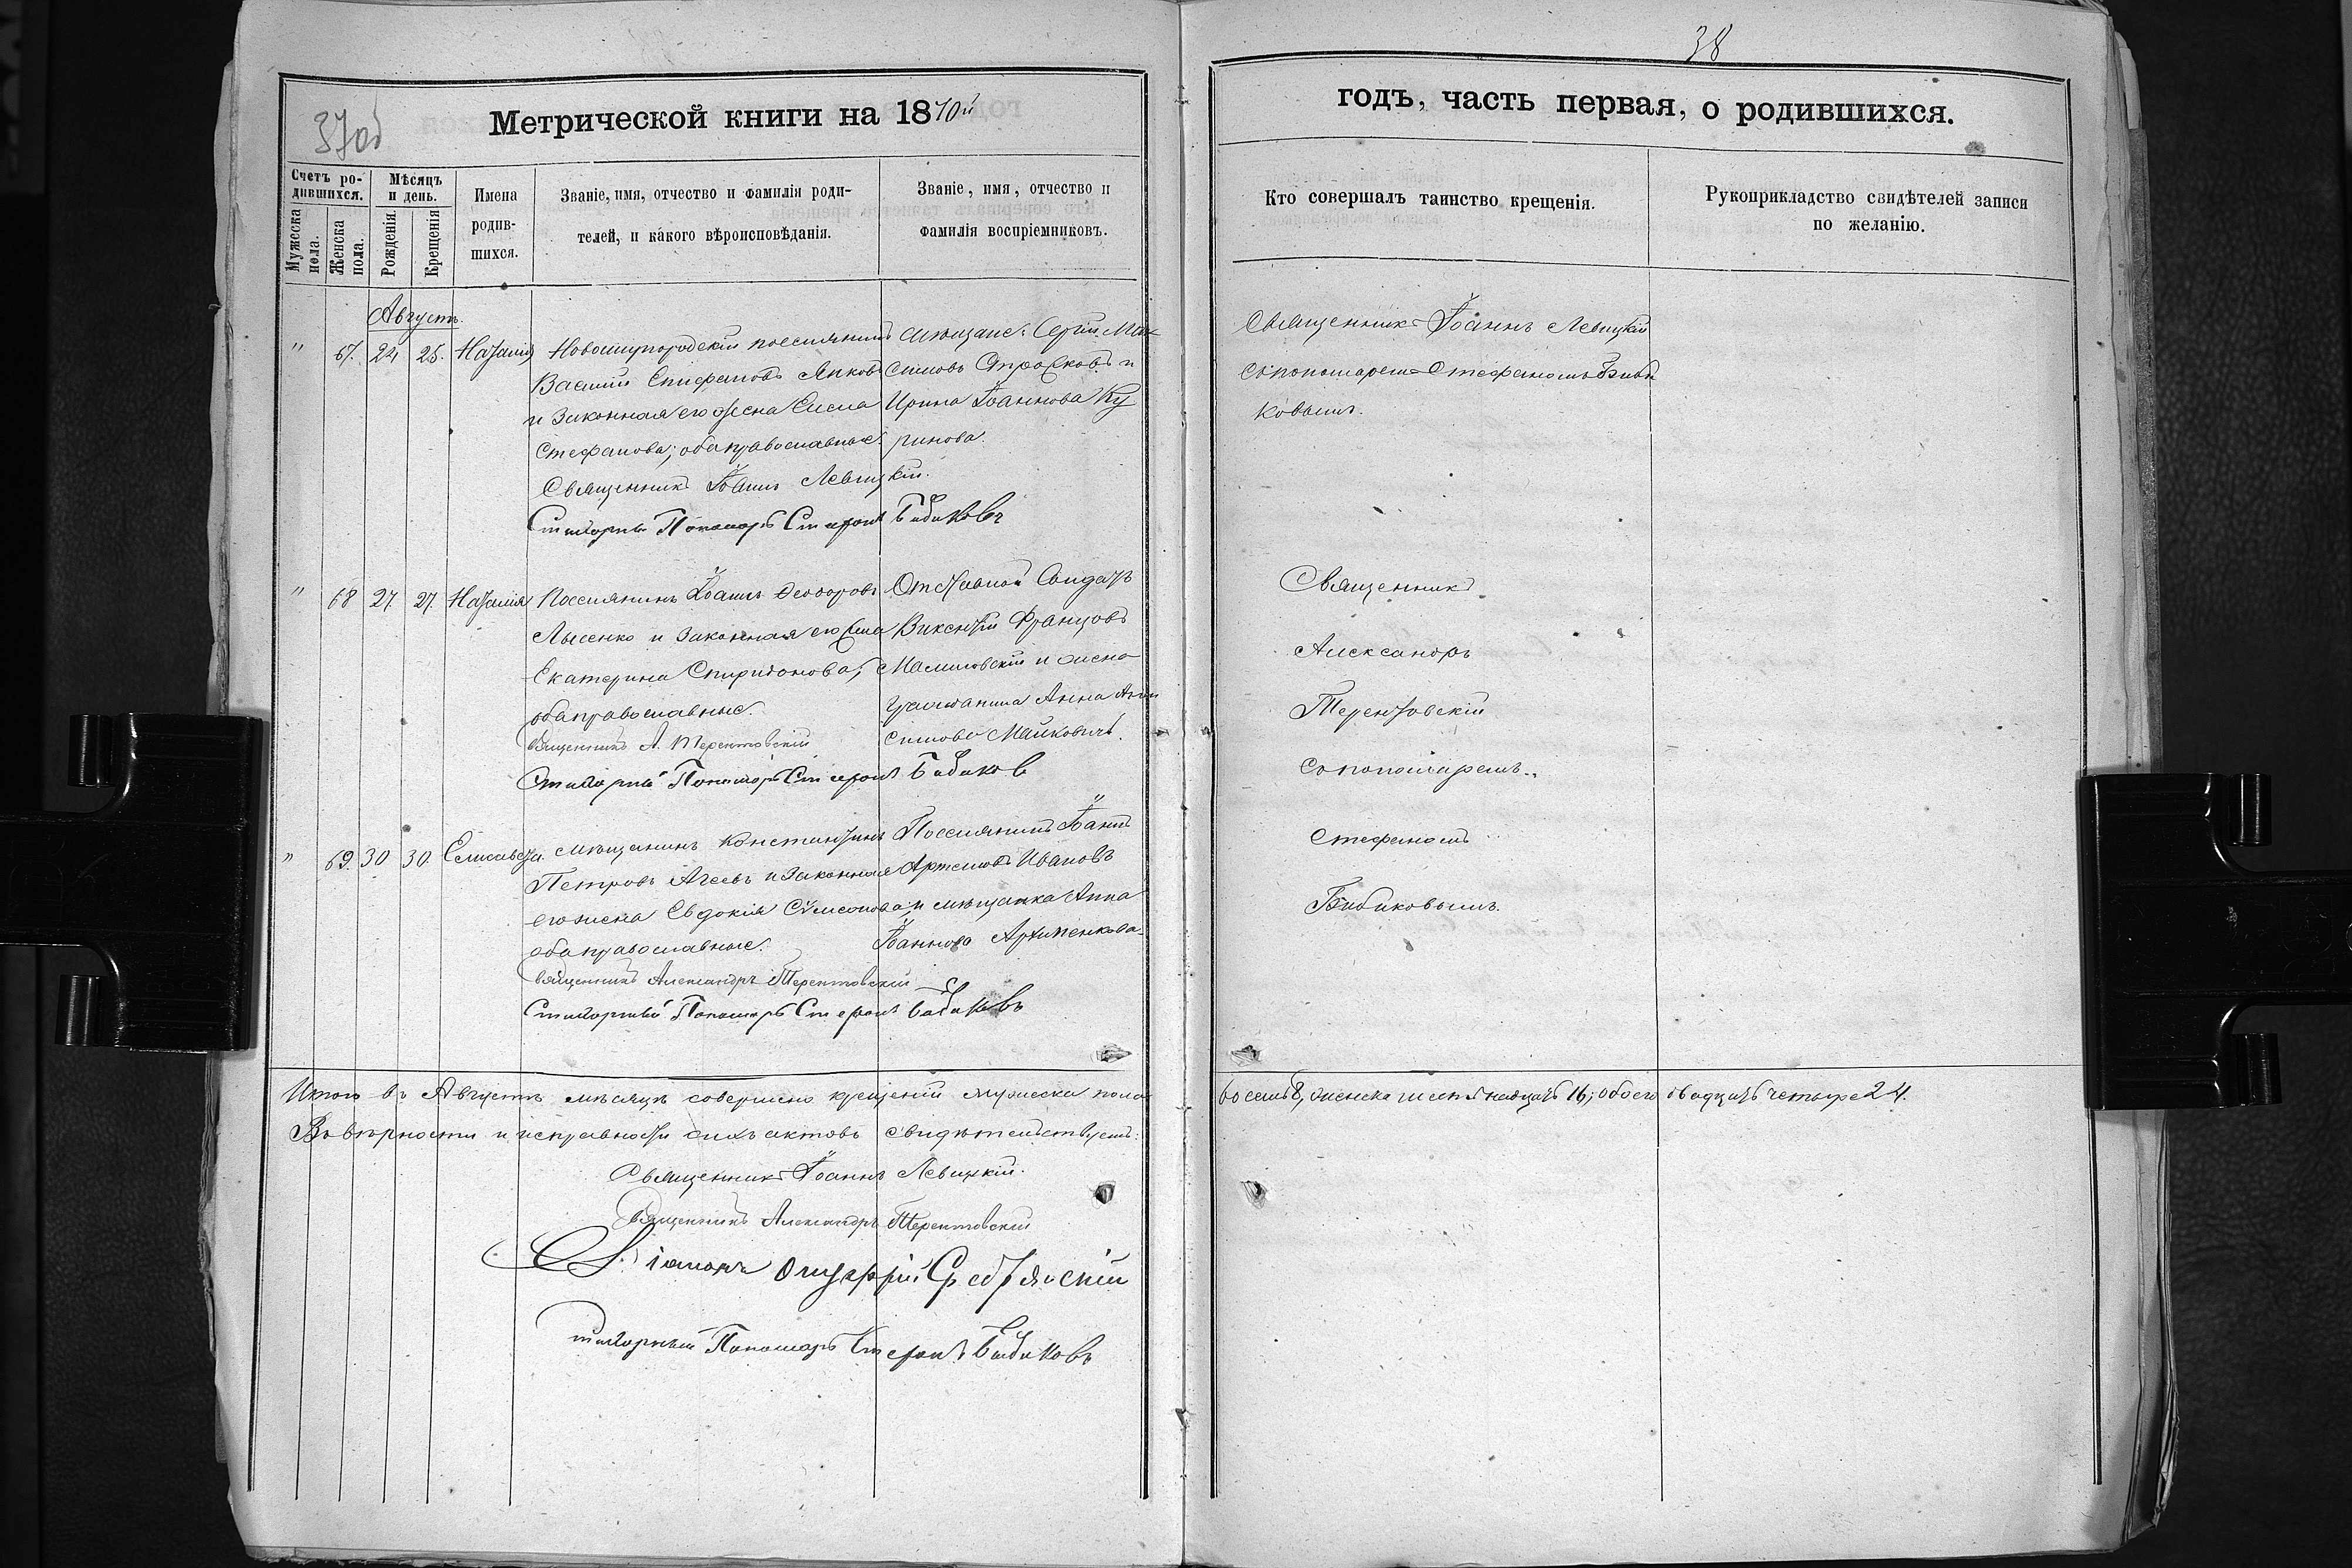 37об
Метрической книги на 1870й
Счетъ родившихся.
Мужеска пола.
Женска пола.
Мѣсяцъ и день.
Рожденія.
Крещенія
Имена родившихся.
Званіе, имя, отчество и фамилія родителей, и какого вѣроисповѣданія.
Званіе, имя, отчество и фамилія воспріемниковъ.
Августъ.
" 67. 24 25. Наталія
Новомиргородскій поселянинъ
Василій Епифановъ
и законная его жена
Стефанова; оба православные.
Священникъ Іоаннъ Левицкій.
Пономарь Стефанъ Бибиковъ
мѣщане: Сергій Мак
симовъ и
Ирина Іоаннова Ку
ринова.
" 68 27. 27. Наталія
Поселянинъ Іоаннъ Ѳеодоровъ
Лысенко и законная его жена
Екатерина Спиридонова;
оба православные.
Священникъ А. Терентовскій
Пономарь Стефанъ Бибиковъ
Отставной Солдатъ
Викентій Францовъ
Малиновскій и жена
Анна Ани
симова Майковичъ.
" 69. 30 30. Елисавета
мѣщанинъ Константинъ
Петровъ Агеевъ и законная
его жена Евдокія Сѵмеонова,
оба православные.
Священникъ Александръ Терентовскій
Пономарь Стефанъ Бибиковъ
Поселянинъ Іоаннъ
Артемовъ Ивановъ
и мѣщанка Анна
Іоаннова Архипенкова.
Итого въ Августѣ мѣсяцѣ совершено крещеній мужеска пола
Въ вѣрности и исправности сихъ актовъ свидѣтельствуемъ:
Священникъ Іоаннъ Левицкій.
Священникъ Александръ Терентовскій
Діаконъ Онуфрій
Пономарь Стефанъ Бибиковъ
38
годъ, часть первая, о родившихся.
Кто совершалъ таинство крещенія.
Рукоприкладство свидѣтелей записи по желанію.
Священникъ Іоаннъ Левицкій
съ пономаремъ Стефаномъ Биби
ковымъ.
Священникъ
Александръ
Терентовскій
съ пономаремъ
Стефаномъ
Бибиковымъ.
восемь 8, женска шестьнадцать 16; обоего двадцать четыре 24.